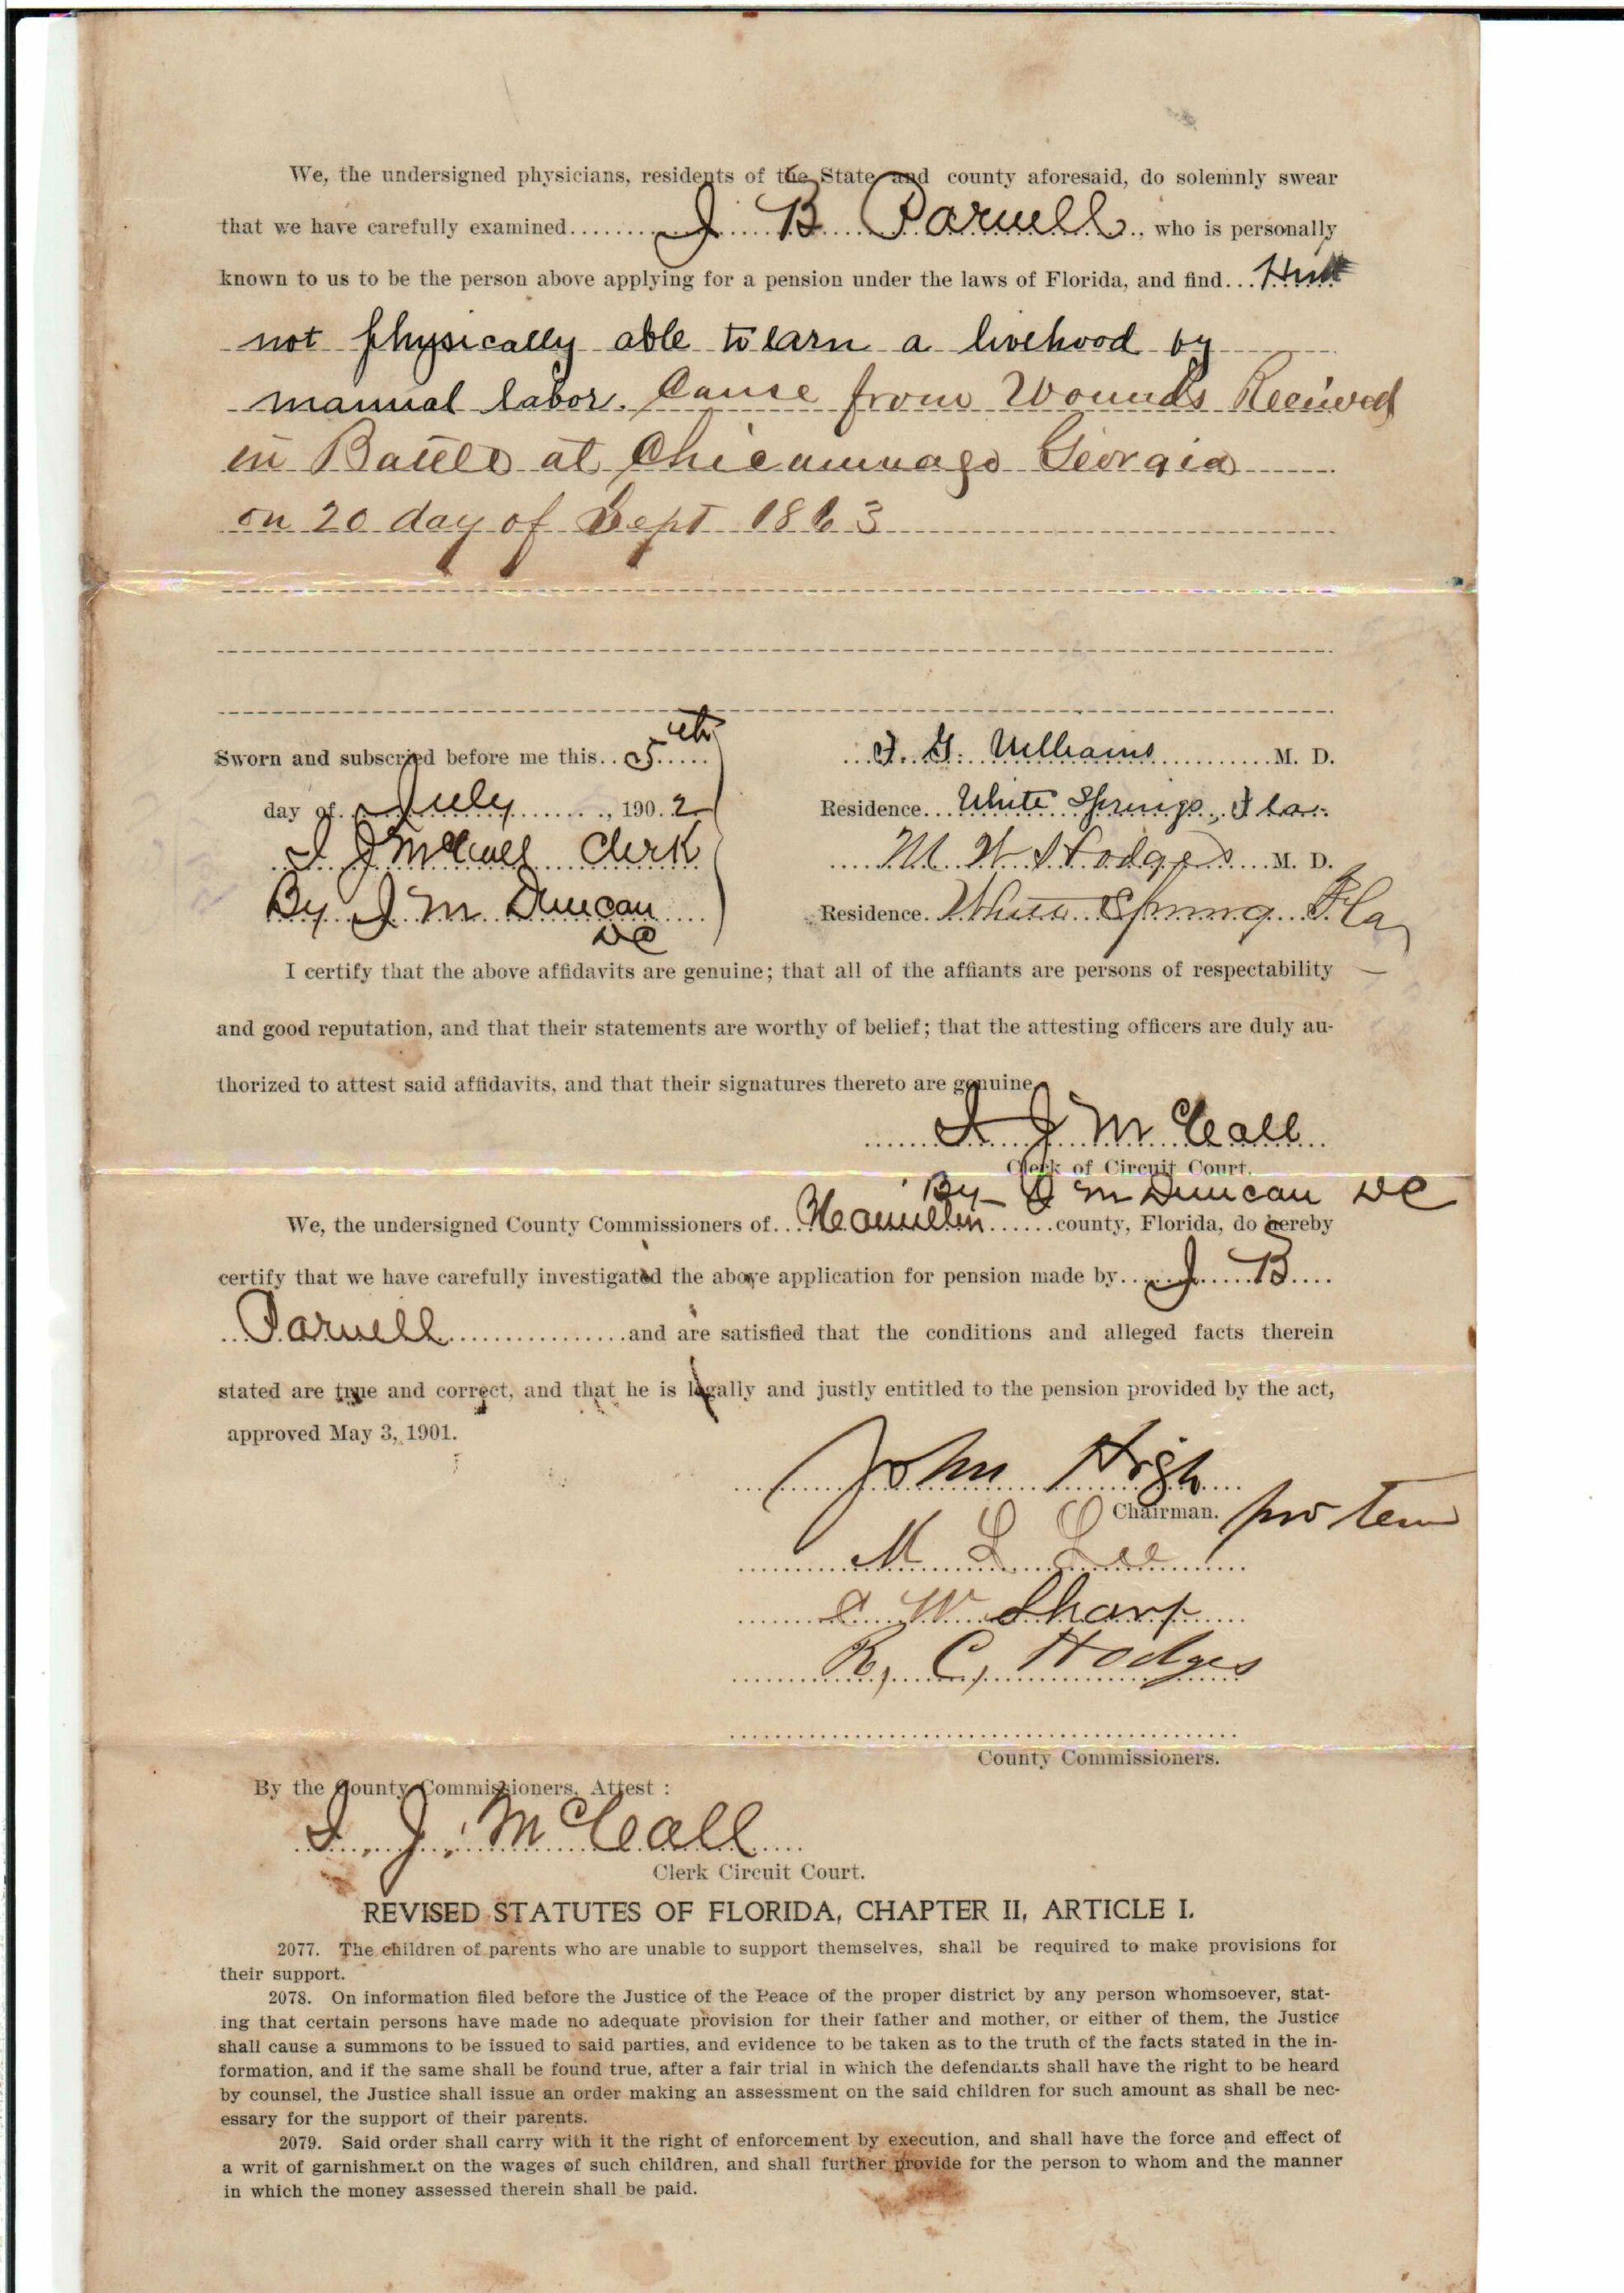 We, the undersigned physicians, residents of the State and county aforesaid, do solemnly swear
that we have carefully examined J B Parnell, who is personally
known to us to be the person above applying for a pension under the laws of Florida, and find
not physically able to earn a livehood by
manual labor. Cause from Wounds Received
in Battle at Chicamauga Georgia
on 20 day of Sept 1863
Sworn and subscried before me this 5th
day of July, 1902
I J McCall Clerk
By J M Duncan
DC
J. G. Williams M. D.
Residence. White Springs, Fla.
M W Hodges M. D.
Residence. White Spring Fla
I certify that the above affidavits are genuine; that all of the affiants are persons of respectability
and good reputation, and that their statements are worthy of belief; that the attesting officers are duly au-
thorized to attest said affidavits, and that their signatures thereto are genuine
I J McCall
Clerk of Circuit Court.
By J M Duncan DC
We, the undersigned County Commissioners of Hamilton county, Florida, do hereby
certify that we have carefully investigated the above application for pension made by J B
Parnell and are satisfied that the conditions and alleged facts therein
stated are true and correct, and that he is legally and justly entitled to the pension provided by the act,
approved May 3, 1901.
John High
Chairman. pro tem
M L Lee
W Sharp
R, C, Hodges
County Commissioners.
By the County Commissioners, Attest :
I. J. McCall
Clerk Circuit Court.
REVISED STATUTES OF FLORIDA, CHAPTER II, ARTICLE I.
2077. The children of parents who are unable to support themselves, shall be required to make provisions for
their support.
2078. On information filed before the Justice of the Peace of the proper district by any person whomsoever, stat-
ing that certain persons have made no adequate provision for their father and mother, or either of them, the Justice
shall cause a summons to be issued to said parties, and evidence to be taken as to the truth of the facts stated in the in-
formation, and if the same shall be found true, after a fair trial in which the defendants shall have the right to be heard
by counsel, the Justice shall issue an order making an assessment on the said children for such amount as shall be nec-
essary for the support of their parents.
2079. Said order shall carry with it the right of enforcement by execution, and shall have the force and effect of
a writ of garnishment on the wages of such children, and shall further provide for the person to whom and the manner
in which the money assessed therein shall be paid.